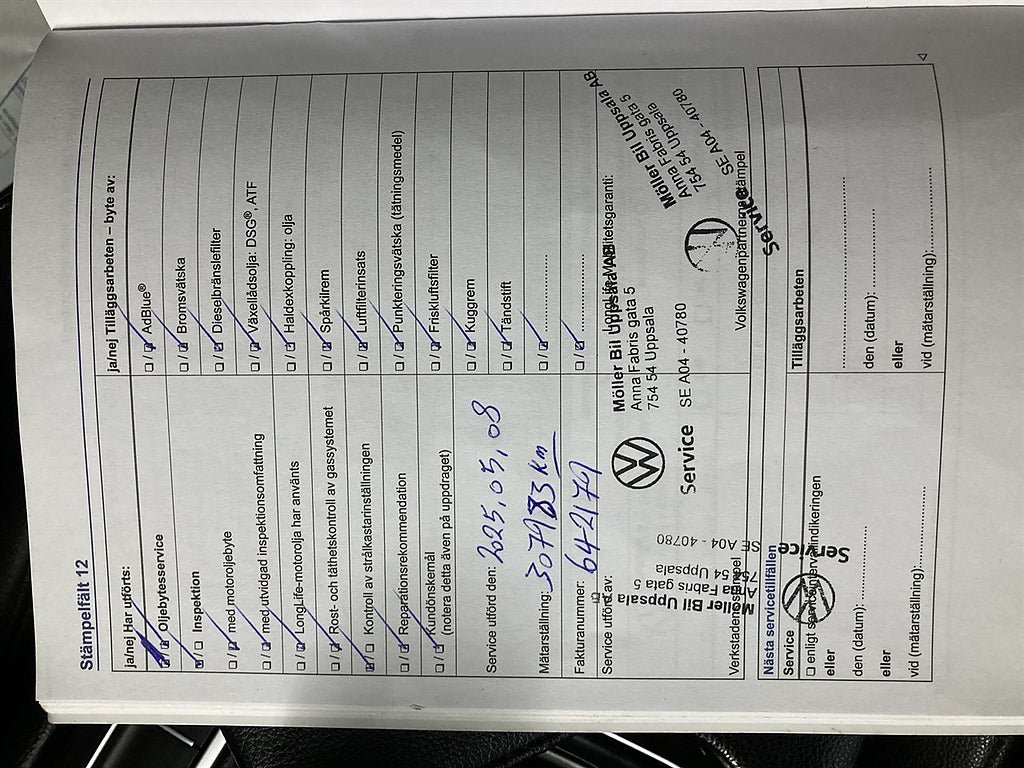 Stämpelfält 12
ja/nej Har utförts:
□/□ Oljebytesservice
□/□ Inspektion
□/□ med motoroljebyte
□/□ med utvidgad inspektionsomfattning
□/□ LongLife-motorolja har använts
□/□ Rost- och täthetskontroll av gassystemet
□/□ Kontroll av strålkastarinställningen
□/□ Reparationsrekommendation
□/□ Kundönskemål
(notera detta även på uppdraget)
ja/nej Tilläggsarbeten – byte av:
□/□ AdBlue®
□/□ Bromsvätska
□/□ Dieselbränslefilter
□/□ Växellådsolja: DSG®, ATF
□/□ Haldexkoppling: olja
□/□ Spårkilrem
□/□ Luftfilterinsats
□/□ Punkteringsvätska (tätningsmedel)
□/□ Friskluftsfilter
□/□ Kuggrem
□/□ Tändstift
□/□ ....................
□/□ ....................
Service utförd den: 2025,05,08
Mätarställning: 307983 km
Fakturanummer: 642174
Service utförd av:
Möller Bil Uppsala AB
Anna Fabris gata 5
754 54 Uppsala
Service SE A04 - 40780
Möller Bil Uppsala AB
Anna Fabris gata 5
754 54 Uppsala
SE A04 - 40780
Service
Volkswagenpartnerns stämpel
Möller Bil Uppsala AB
Anna Fabris gata 5
754 54 Uppsala
SE A04 - 40780
Service
Nästa servicetillfällen
Service
□ enligt serviceintervallindikeringen
eller
den (datum):....................
eller
vid (mätarställning):....................
Tilläggsarbeten
....................
den (datum):....................
eller
vid (mätarställning):....................